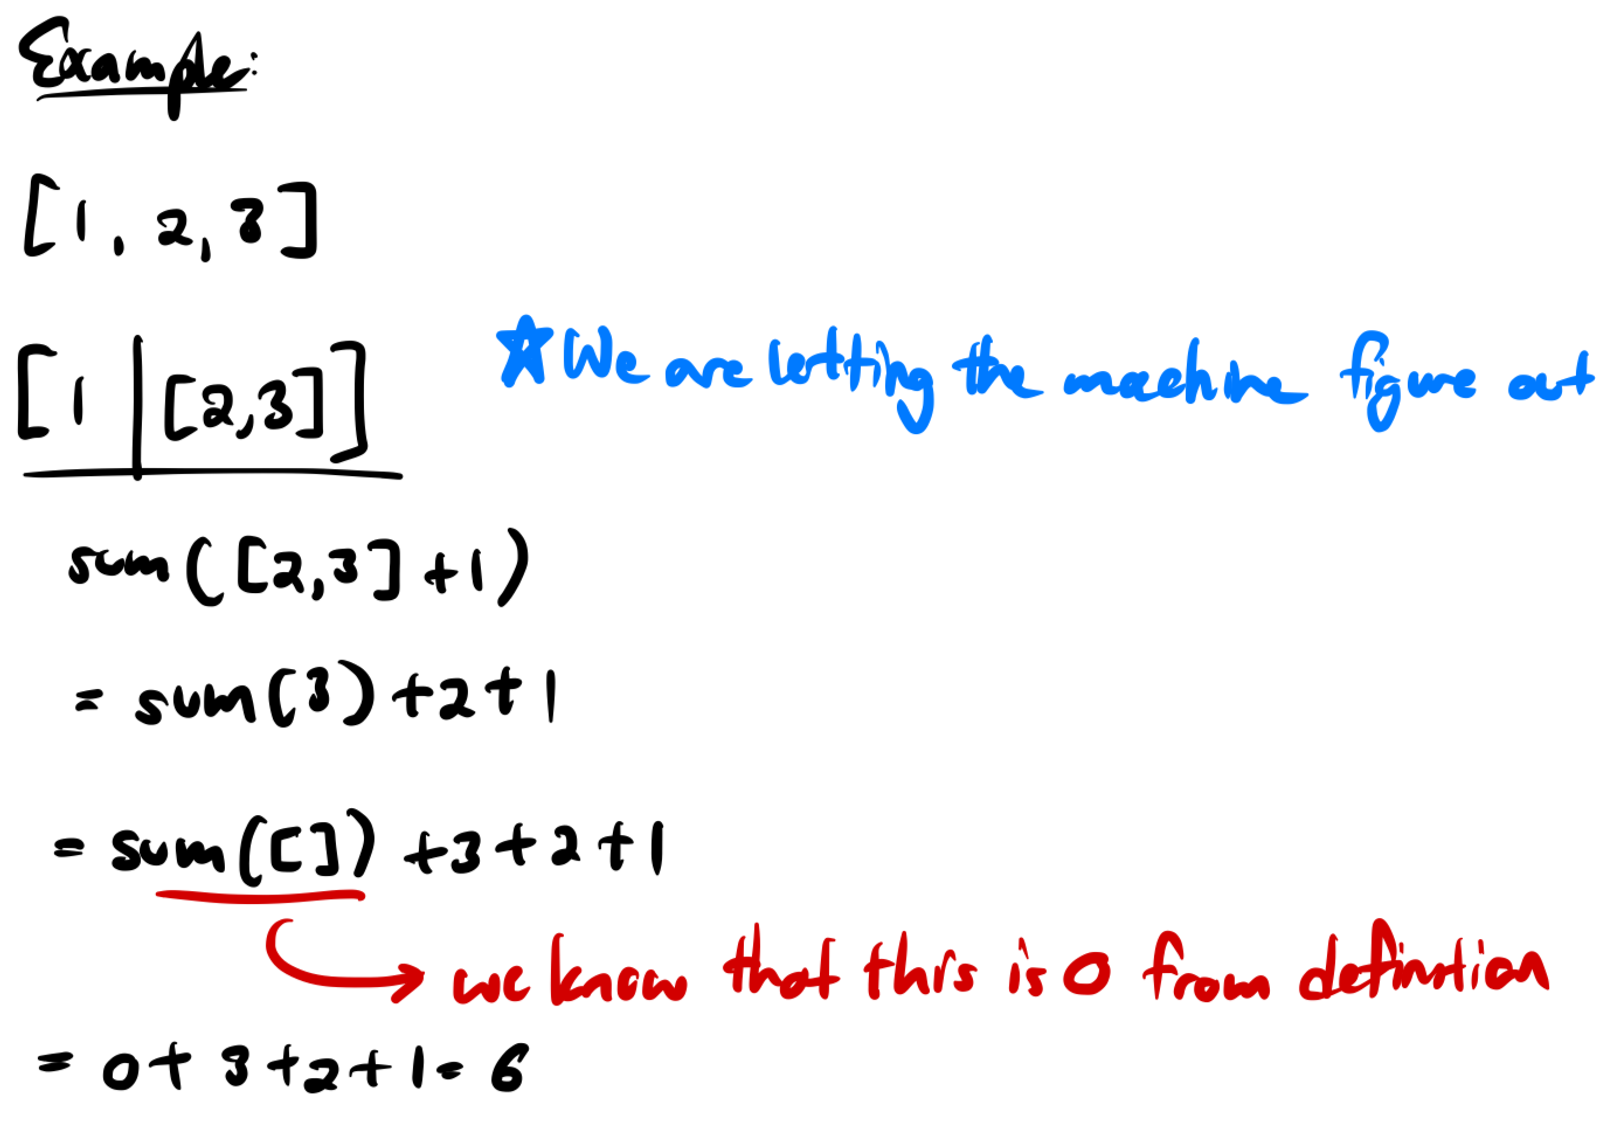 Example:
[1, 2, 3]
[1 | [2,3]]
★ We are letting the machine figure out
sum([2,3] +1)
= sum(3) +2+1
= sum([]) +3+2+1
we know that this is 0 from definition
= 0+ 3+2+1= 6